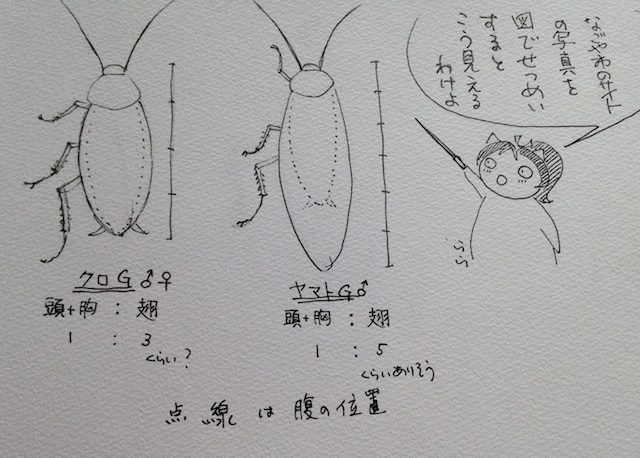 クロG♂♀
頭+胸:翅
1:3
くらい?
ヤマトG♂
頭+胸:翅
1:5
くらいありそう
点線は腹の位置
の写真を
図でせつめい
すると
こう見える
わけよ